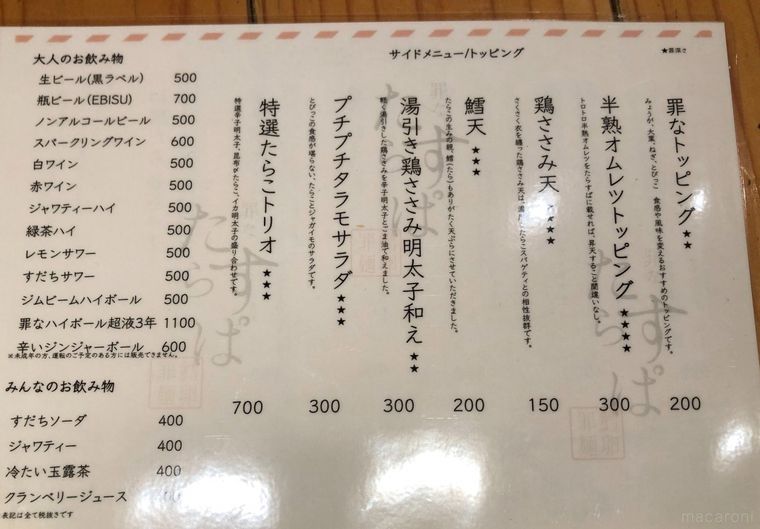 大人のお飲み物
生ビール(黒ラベル) 500
瓶ビール(EBISU) 700
ノンアルコールビール 500
スパークリングワイン 600
白ワイン 500
赤ワイン 500
ジャワティーハイ 500
緑茶ハイ 500
レモンサワー 500
すだちサワー 500
ジムビームハイボール 500
罪なハイボール超液3年 1100
辛いジンジャーボール 600
※未成年の方、運転のご予定のある方には販売できません。
みんなのお飲み物
すだちソーダ 400
ジャワティー 400
冷たい玉露茶 400
クランベリージュース
表記は全て税抜きです
サイドメニュー/トッピング
★罪深さ
罪なトッピング ★★
みょうが、大葉、ねぎ、とびっこ 食感や風味を変えるおすすめのトッピングです。
200
半熟オムレツトッピング ★★★★
トロトロ半熟オムレツをたらすぱに載せれば、昇天すること間違いなし。
300
鶏ささみ天 ★★★
さくさく衣を纏った鶏ささみ天は、濃厚たらこスパゲティとの相性抜群です。
150
鱈天 ★★★
たらこの生みの親、鱈(たら)もありがたく天ぷらにさせていただきました。
200
湯引き鶏ささみ明太子和え ★★
軽く湯引きした鶏ささみを辛子明太子とごま油で和えました。
300
プチプチタラモサラダ ★★★
とびっこの食感が堪らない、たらことジャガイモのサラダです。
300
特選たらこトリオ ★★★
特選辛子明太子、昆布〆たらこ、イカ明太子の盛り合わせです。
700
たらすぱ
たらすぱ
macaroni